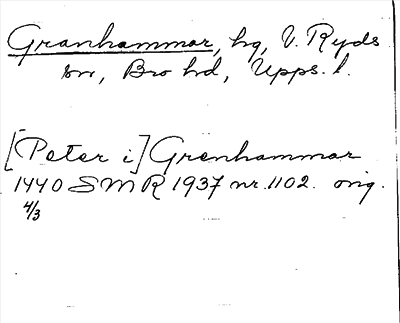 Granhammar, hg, V. Ryds
sn, Bro hd, Upps. l.
[Peter i] Grenhammar
1440 SMR 1937 nr. 1102. orig.
4/3